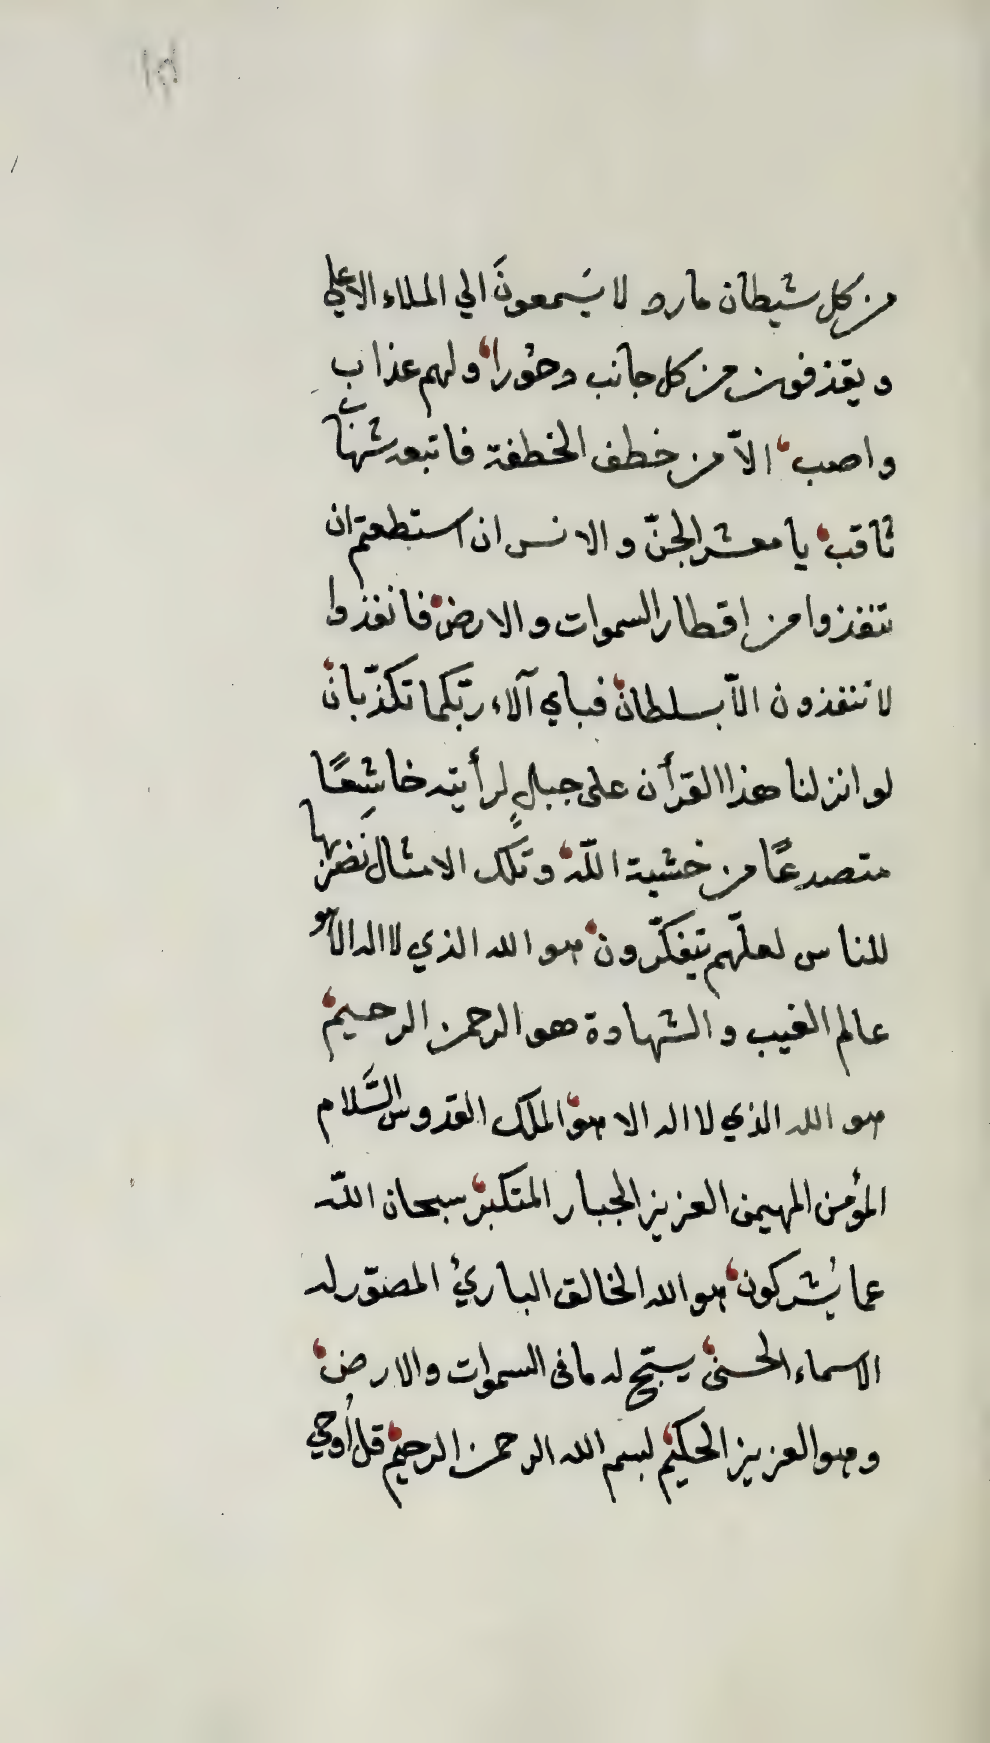 من كل شيطان مارد لا يسمعونَ الي الملاء الاعلي
ويقذفون من كل جانب دحُورا ولهم عذاب
واصب الاّ من خطف الخطفة فاتبعه شهاب
ثاقب يا معشر الجنّ والانس ان استطعتم ان
تنفذوا من اقطار السموات والارض فانفذوا
لا تنفذون الاّ بسلطان فباي آلاء ربّكما تكذّبان
لو انزلنا هذا القرأن على جبلٍ لرأيته خاشِعًا
متصدعًا من خشية اللّه وتلك الامثال نَضربها
للناس لعلّهم يتفكّرون هو الله الذي لا اله الا هو
عالم الغيب والشهادة هو الرحمن الرحيم
هو الله الذي لا اله الا هو الملك القدوس السَّلام
المؤمن المهيمن العزيز الجبار المتكبر سبحان اللّه
عما يُشركون هو الله الخالق البارئُ المصوّر له
الاسماء الحسنى يسبّح له ما فى السموات والارض
وهو العزيز الحكيم بسم الله الرحمن الرحيم قل اُوحي